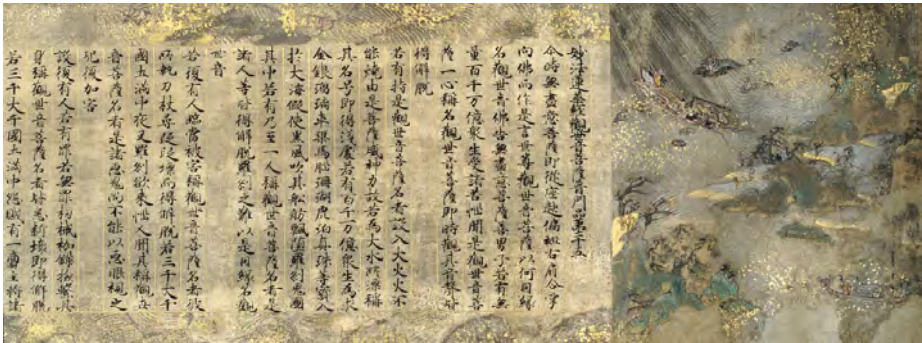 妙法蓮華經觀世音菩薩普門品第廿五
尒時無盡意菩薩即從座起偏袒右肩合掌
向佛而作是言世尊觀世音菩薩以何因緣
名觀世音佛告無盡意菩薩善男子若有無
量百千万億衆生受諸苦惱聞是觀世音菩
薩一心稱名觀世音菩薩即時觀其音聲皆
得解脫
若有持是觀世音菩薩名者設入大火火不
能燒由是菩薩威神力故若為大水所漂稱
其名号即得淺處若有百千万億衆生為求
金銀瑠璃車𤦲馬腦珊瑚虎珀真珠等寶入
於大海假使黑風吹其舩舫飄墮羅刹鬼國
其中若有乃至一人稱觀世音菩薩名者是
諸人等皆得解脫羅刹之難以是因緣名觀
世音
若復有人臨當被害稱觀世音菩薩名者彼
所執刀杖尋段段壞而得解脫若三千大千
國土滿中夜叉羅刹欲來惱人聞其稱觀世
音菩薩名者是諸惡鬼尚不能以惡眼視之
况復加害
設復有人若有罪若無罪杻械枷鎖撿繫其
身稱觀世音菩薩名者皆悉斷壞即得解脫
若三千大千國土滿中怨賊有一商主將諸